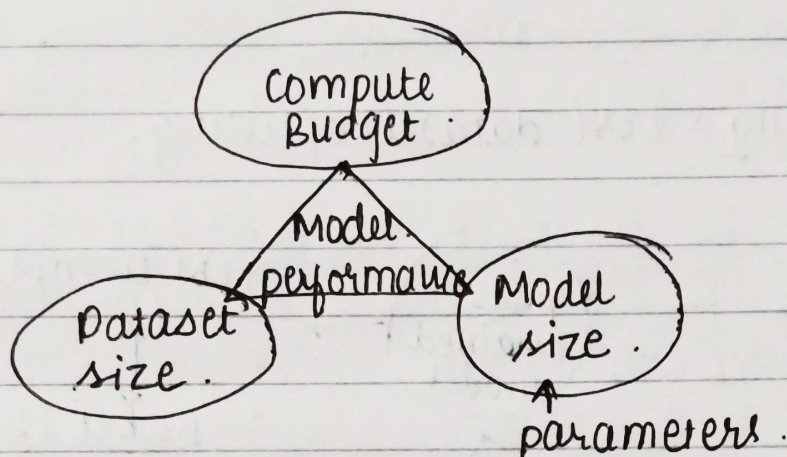 Compute
Budget.
Model
performance
Dataset
size.
Model
size.
parameters.